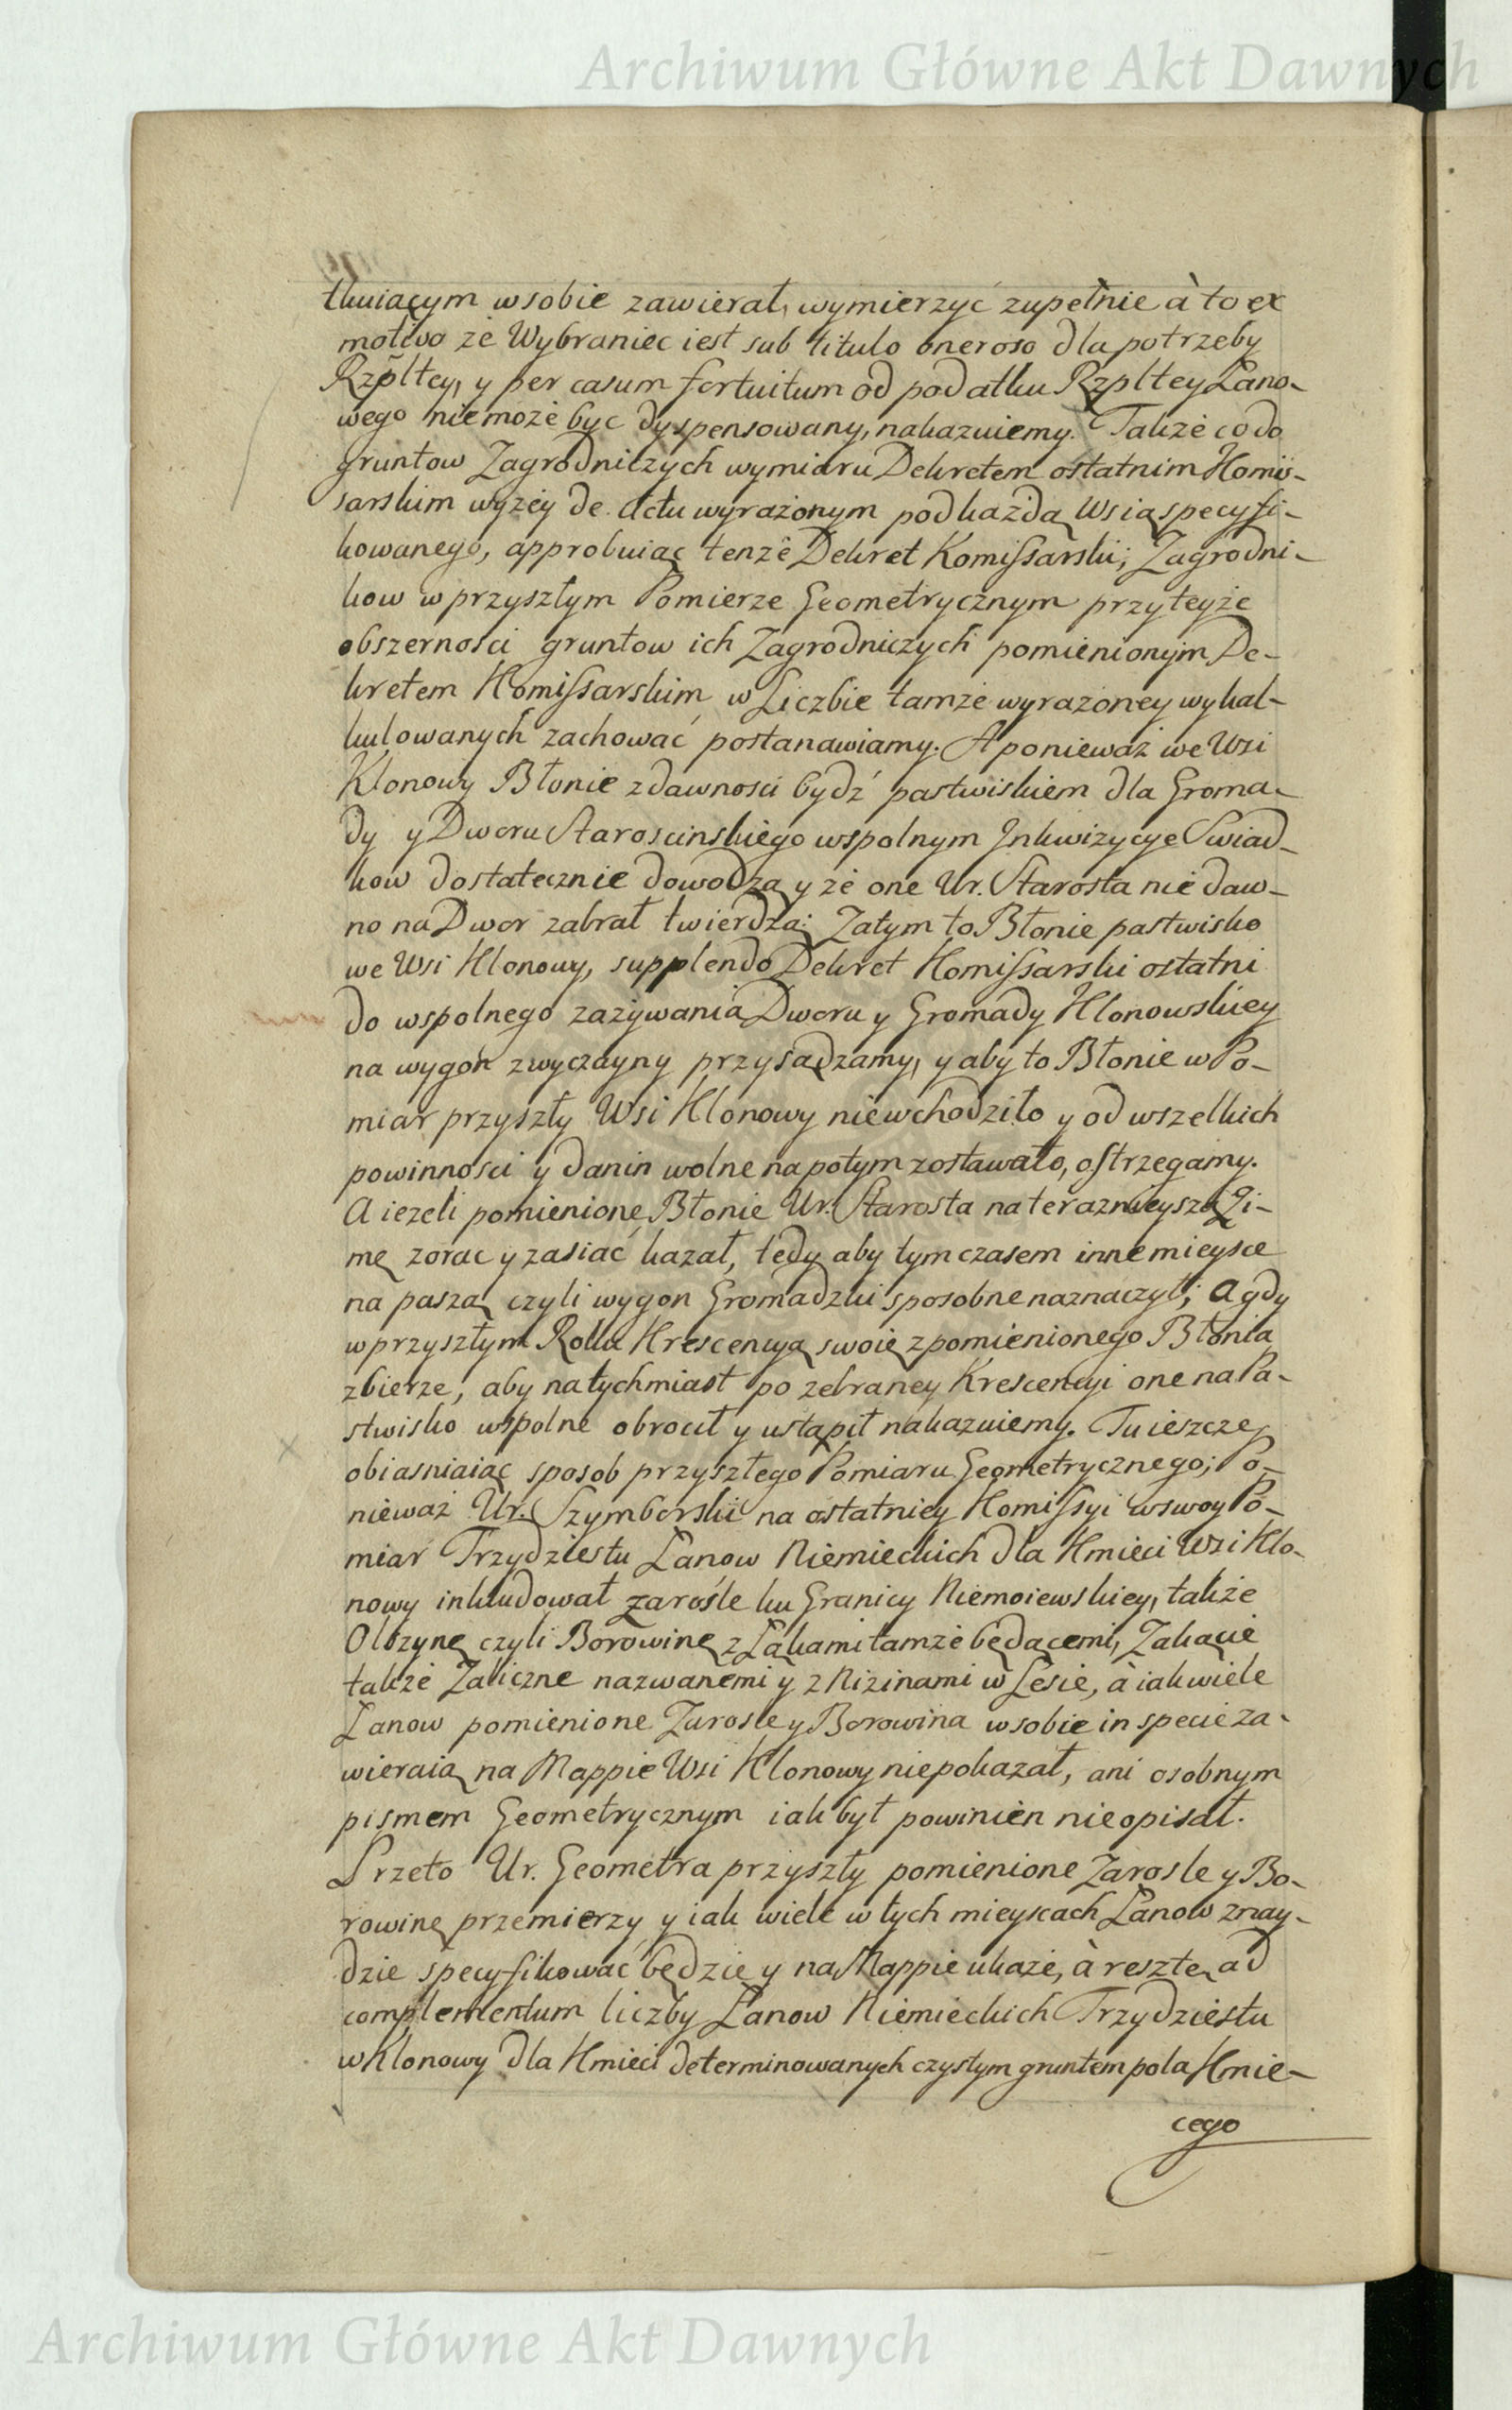 Archiwum Główne Akt Dawnych
tkuiącym w sobie zawierał, wymierzyć zupełnie à to ex
motivo że Wybraniec iest sub titulo oneroso dla potrzeby
Rzpltey, y per casum fortuitum od podatku Rzpltey Łano-
wego nie może byc dyspensowany, nakazuiemy. Także co do
gruntow Zagrodniczych wymiaru Dekretem ostatnim Komis-
sarskim wyżey de Actu wyrażonym pod każdą Wsią specyfi-
kowanego, approbuiąc tenże Dekret Komissarski; Zagrodni-
kow w przyszłym Pomierze Geometrycznym przy teyże
obszernosci gruntow ich Zagrodniczych pomienionym De-
kretem Komissarskim w Liczbie tamże wyrażoney wykal-
kulowanych zachować postanawiamy. A ponieważ we Wsi
Klonowy Błonie zdawnosci bydź pastwiskiem dla Groma-
dy y Dworu Staroscinskiego wspolnym Inkwizycye Swiad-
kow dostatecznie dowodzą y że one Ur. Starosta nie daw-
no na Dwor zabrał twierdzą: Zatym to Błonie pastwisko
we Wsi Klonowy, supplendo Dekret Komissarski ostatni
do wspolnego zażywania Dworu y Gromady Klonowskiey
na wygon zwyczayny przysądzamy, y aby to Błonie w Po-
miar przyszły Wsi Klonowy niewchodziło y od wszelkich
powinnosci y danin wolne napotym zostawało, ostrzegamy.
A ieżeli pomienione Błonie Ur. Starosta na teraznieyszą Zi-
mę zorac y zasiać kazał, tedy aby tym czasem inne mieysce
na paszą czyli wygon Gromadzki sposobne naznaczył; A gdy
w przyszłym Roku Krescencyą swoię z pomienionego Błonia
zbierze, aby natychmiast po zebraney Krescencyi one na Pa-
stwisko wspolne obrocił y ustąpił nakazuiemy. Tu ieszcze
obiasniaiąc sposob przyszłego Pomiaru Geometrycznego; Po-
nieważ Ur. Szymborski na ostatniey Komissyi w swoy Po-
miar Trzydziestu Łanow Niemieckich dla Kmieci Wsi Klo-
nowy inkludował zarośle ku Granicy Niemoiewskiey, także
Olszynę czyli Borowinę z Łąkami tamże będącemi, Zakącie
także Zaliczne nazwanemi y z Nizinami w Lesie, à iak wiele
Łanow pomienione Zarosle y Borowina w sobie in specie za-
wieraią na Mappie Wsi Klonowy niepokazał, ani osobnym
pismem Geometrycznym iak był powinien nieopisał.
Przeto Ur. Geometra przyszły pomienione Zarosle y Bo-
rowinę przemierzy y iak wiele w tych mieyscach Łanow znay-
dzie specyfikować będzie y na Mappie ukaże, à resztę ad
complementum liczby Łanow Niemieckich Trzydziestu
w Klonowy dla Kmieci determinowanych czystym gruntem pola Kmie-
cego
Archiwum Główne Akt Dawnych